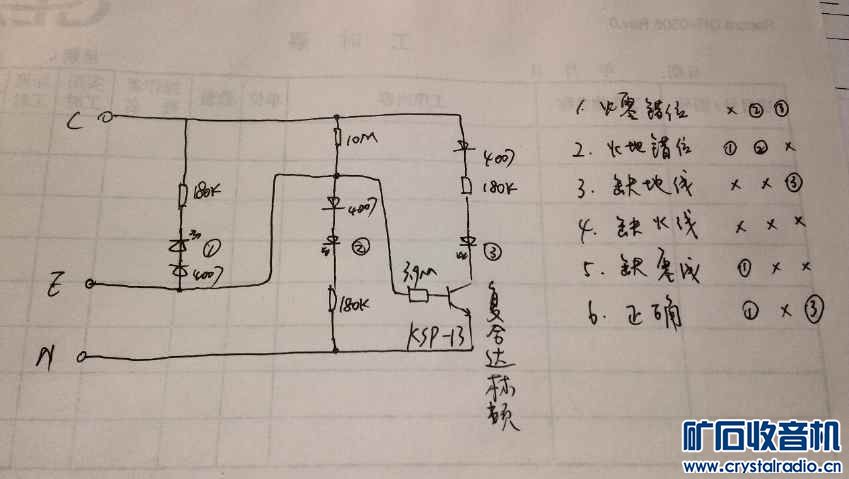 C
10M
4007
180K
180K
①
4007
4007
②
③
E
3.9M
180K
N
KSP-13
复合达林顿
1. 火零错位 × ② ③
2. 火地错位 ① ② ×
3. 缺地线 × × ③
4. 缺火线 × × ×
5. 缺零线 ① × ×
6. 正确 ① × ③
矿石收音机
www.crystalradio.cn